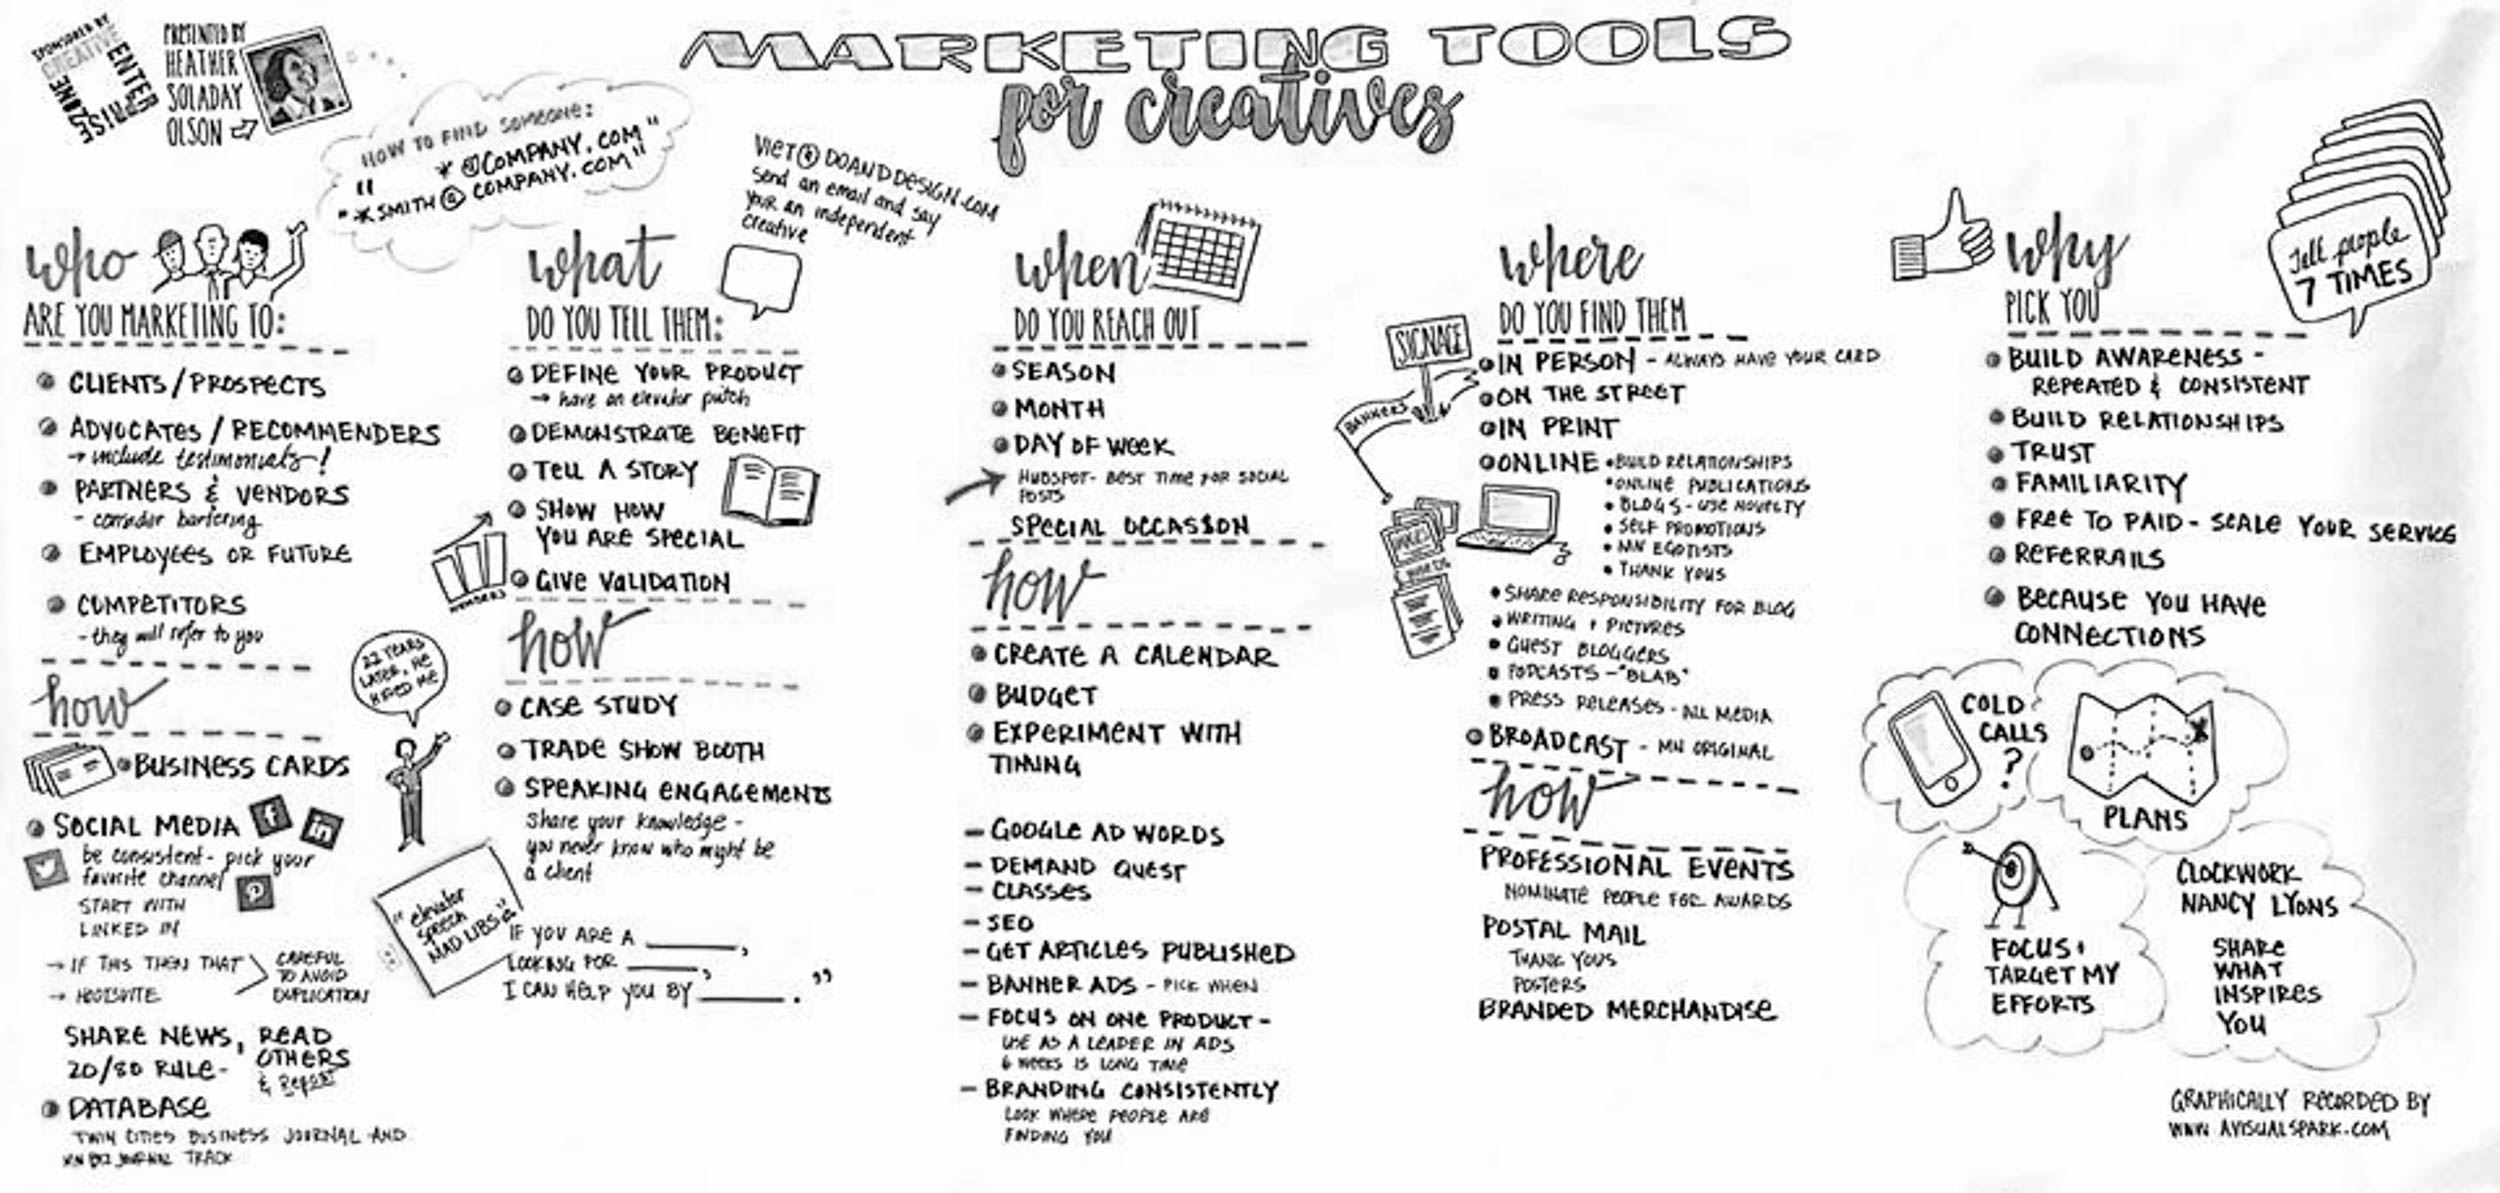 SPONSORED BY
CREATIVE
ENTER
PRISE
ZONE
PRESENTED BY
HEATHER
SOLADAY
OLSON
HOW TO FIND SOMEONE:
" * @COMPANY.COM"
"*SMITH@COMPANY.COM"
MARKETING TOOLS
for creatives
VIET@DOANDDESIGN.COM
Send an email and say
your an independent
creative
who
ARE YOU MARKETING TO:
CLIENTS/PROSPECTS
ADVOCATES/RECOMMENDERS
→ include testimonials!
PARTNERS & VENDORS
- consider bartering
EMPLOYEES OR FUTURE
COMPETITORS
- they will refer to you
how
BUSINESS CARDS
SOCIAL MEDIA
f
in
be consistent - pick your
favorite channel
START WITH
LINKED IN
→ IF THIS THEN THAT
→ HOOTSUITE
CAREFUL
TO AVOID
DUPLICATION
SHARE NEWS, READ
OTHERS
20/80 RULE -
& Report
DATABASE
TWIN CITIES BUSINESS JOURNAL AND
JOURNAL TRACK
22 YEARS
LATER, HE
HIRED ME
what
DO YOU TELL THEM:
DEFINE YOUR PRODUCT
→ have an elevator pitch
DEMONSTRATE BENEFIT
TELL A STORY
SHOW HOW
YOU ARE SPECIAL
GIVE VALIDATION
NUMBERS
how
CASE STUDY
TRADE SHOW BOOTH
SPEAKING ENGAGEMENTS
Share your knowledge -
you never know who might be
a client
"elevator
speech
MAD LIBS"
IF YOU ARE A ________,
LOOKING FOR ______,
I CAN HELP YOU BY _______. "
when
DO YOU REACH OUT
SEASON
MONTH
DAY OF WEEK
HUBSPOT- BEST TIME FOR SOCIAL
POSTS
SPECIAL OCCASSION
how
CREATE A CALENDAR
BUDGET
EXPERIMENT WITH
TIMING
- GOOGLE AD WORDS
- DEMAND QUEST
- CLASSES
- SEO
- GET ARTICLES PUBLISHED
- BANNER ADS - PICK WHEN
- FOCUS ON ONE PRODUCT -
USE AS A LEADER IN ADS
6 WEEKS IS LONG TIME
- BRANDING CONSISTENTLY
LOOK WHERE PEOPLE ARE
FINDING YOU
where
DO YOU FIND THEM
SIGNAGE
BANNERS
IN PERSON - ALWAYS HAVE YOUR CARD
ON THE STREET
IN PRINT
ONLINE • BUILD RELATIONSHIPS
• ONLINE PUBLICATIONS
• BLOGS - USE NOVELTY
• SELF PROMOTIONS
• MN EGOTISTS
• THANK YOUS
• SHARE RESPONSIBILITY FOR BLOG
• WRITING + PICTURES
• GUEST BLOGGERS
• PODCASTS - "BLAB"
• PRESS RELEASES - ALL MEDIA
BROADCAST - MN ORIGINAL
how
PROFESSIONAL EVENTS
NOMINATE PEOPLE FOR AWARDS
POSTAL MAIL
THANK YOUS
POSTERS
BRANDED MERCHANDISE
why
PICK YOU
Tell people
7 TIMES
BUILD AWARENESS -
REPEATED & CONSISTENT
BUILD RELATIONSHIPS
TRUST
FAMILIARITY
FREE TO PAID - SCALE YOUR SERVICE
REFERRAILS
BECAUSE YOU HAVE
CONNECTIONS
COLD
CALLS
?
PLANS
FOCUS +
TARGET MY
EFFORTS
CLOCKWORK
NANCY LYONS
SHARE
WHAT
INSPIRES
YOU
GRAPHICALLY RECORDED BY
WWW.AVISUALSPARK.COM